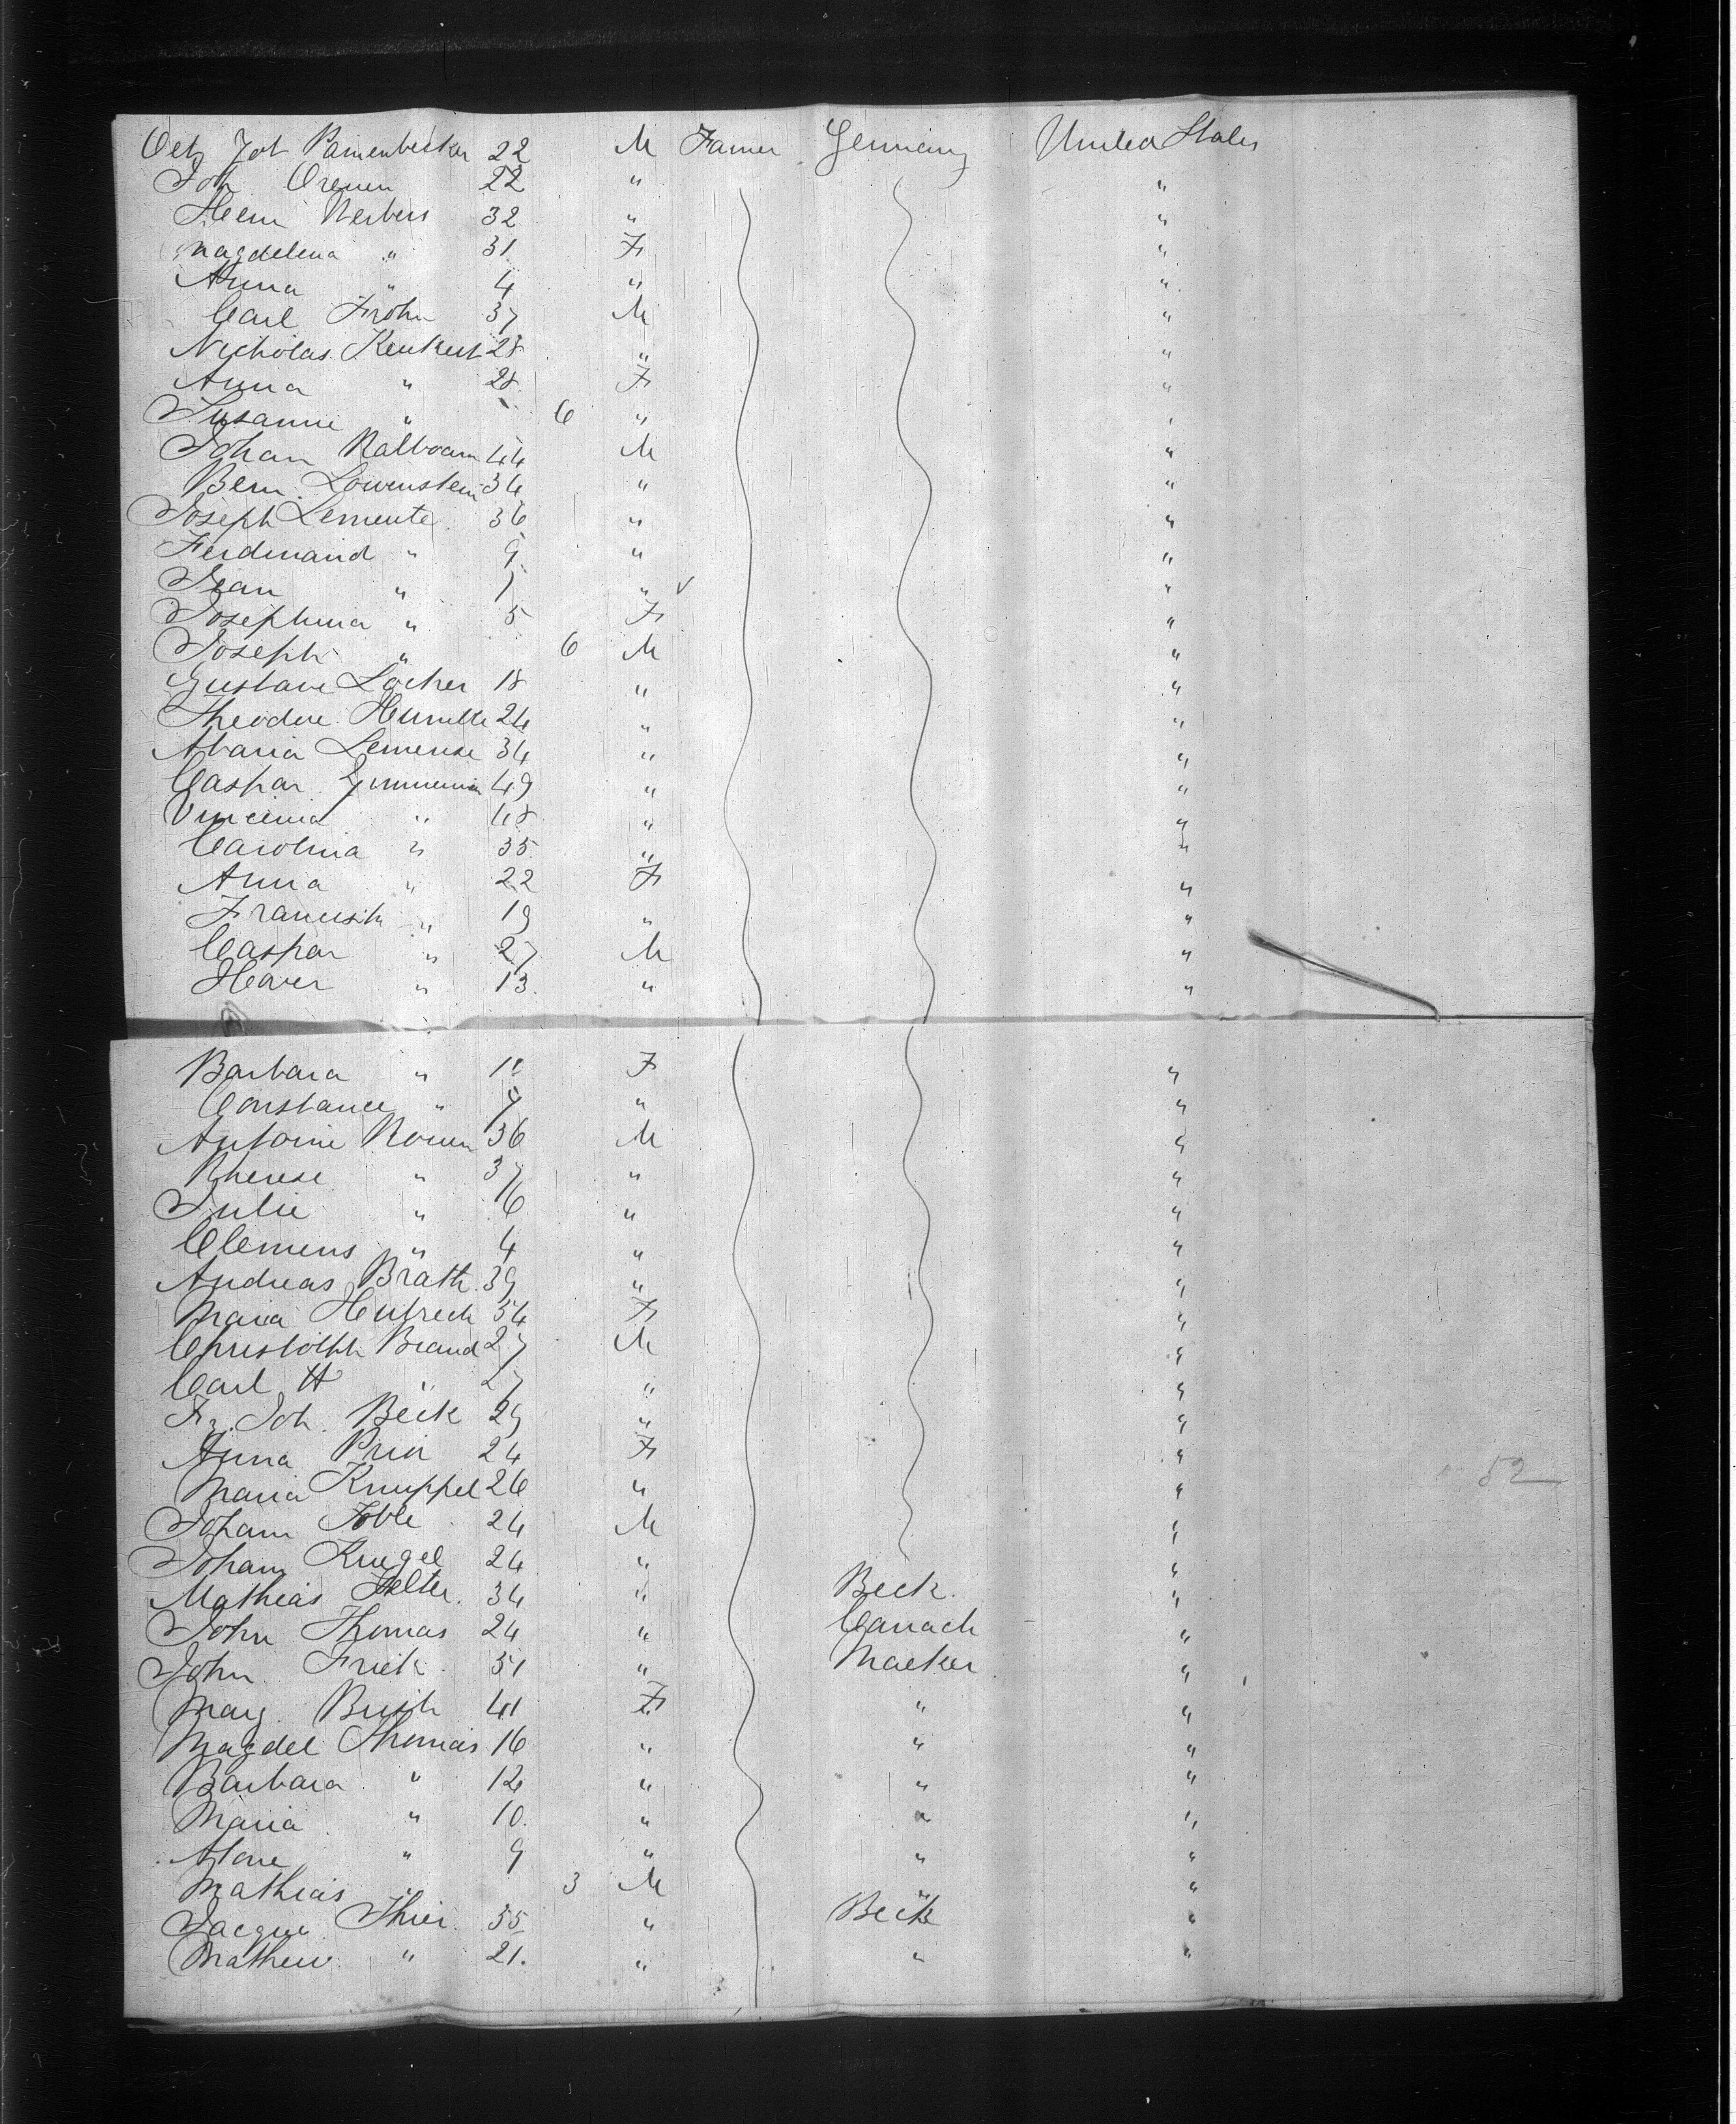 Oetz Joh Pamenbecker 22 M Farmer Germany United States
Joh Orenen 22 " "
Heinr Nerbers 32 " "
Magdelena " 31 F "
Anna " 4 " "
Carl Frohn 37 M "
Nicholas Kenkert 28 " "
Anna " 28 F "
Susanne " 6 " "
Johan Nalboam 44 M "
Bern. Lowenstein 34 " "
Joseph Lemente 36 " "
Ferdinand " 9 " "
Jean " 7 " "
Josephina " 5 F "
Joseph " 6 M "
Gustave Locher 18 " "
Theodore 24 " "
Lemense 34 " "
Caspar 49 " "
" 48 " "
Carolina " 35 " "
Anna " 22 F "
Francisk " 19 " "
Caspar " 27 M "
Xaver " 13 " "
Barbara " F "
Constance " " "
Antoine Nouen 36 M "
Therese " 37 " "
Julie " 16 " "
Clemens " 4 " "
Andreas Brath 39 " "
Maria Heufrech 54 F "
Christoph Brand 27 M "
Carl H " 27 " "
Fr. Joh. Beck 29 " "
Anna Prin 24 F "
Maria Knuppel 26 " " 52
Johann Foble 24 M "
Johann Kruegel 24 " "
Mathias Felter 34 " Beck "
John Thomas 24 " Canach "
John Frick 51 " Macker "
Marg Bush 41 F " "
Magdel Thomas 16 " " "
Barbara " 12 " " "
Maria " 10 " " "
" 9 " " "
Mathias " 3 M " "
Jacque Thier 55 " Beck "
Mathew " 21. " " "